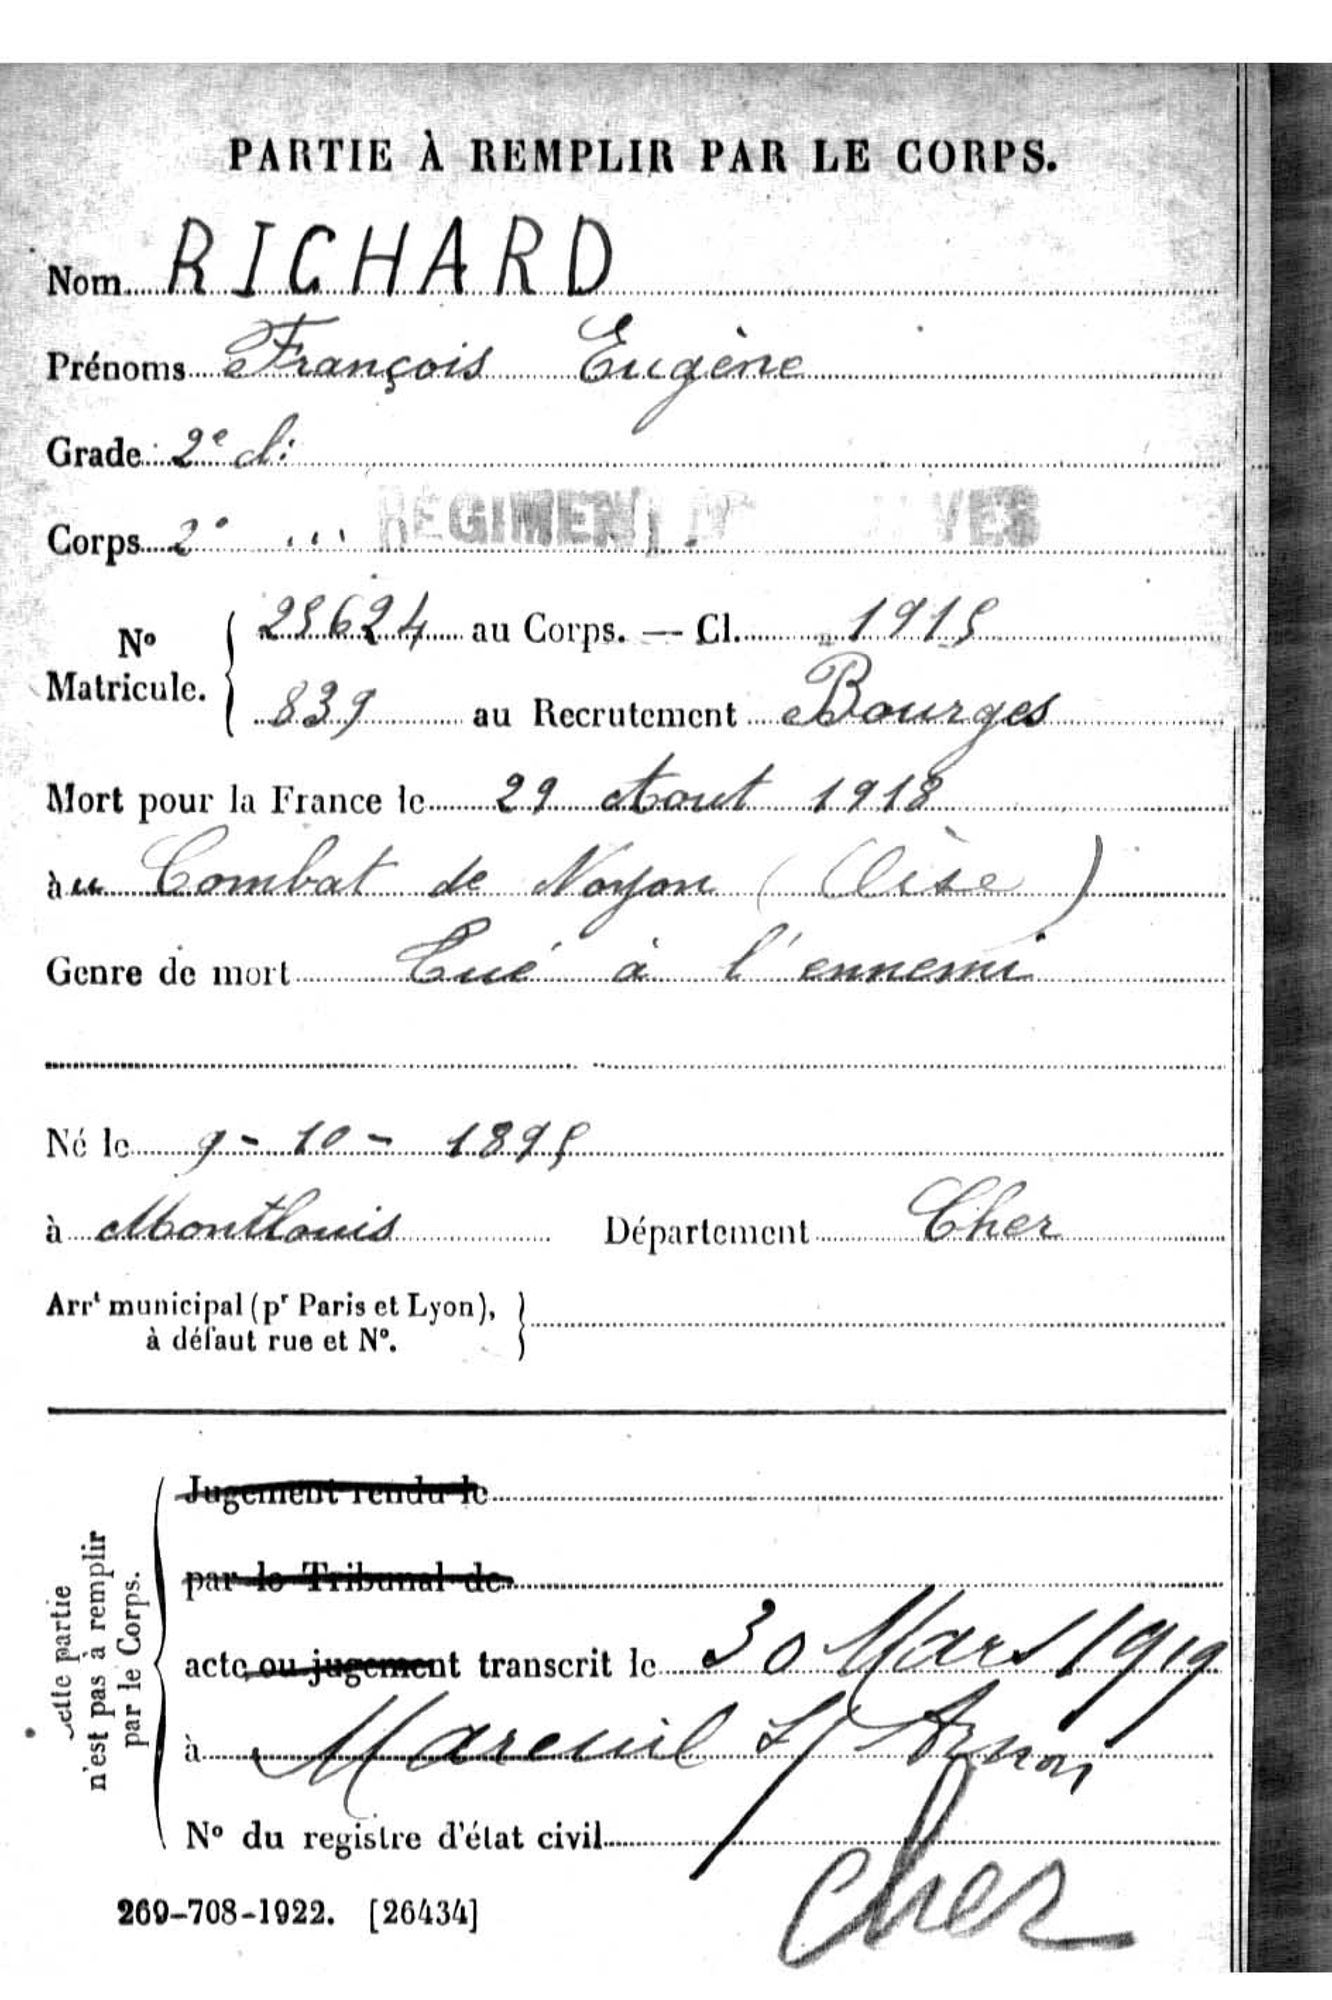 PARTIE À REMPLIR PAR LE CORPS.
Nom RICHARD
Prénoms François Eugène
Grade 2e cl:
Corps 2e ... RÉGIMENT D VES
No Matricule. { 25624 au Corps. — Cl. 1915
839 au Recrutement Bourges
Mort pour la France le 29 Aout 1918
àu Combat de Noyon (Oise)
Genre de mort Tué à l'ennemi
Né le 9-10-1895
à Montlouis Département Cher
Arrt municipal (pr Paris et Lyon),
à défaut rue et No. }
Cette partie
n'est pas à remplir
par le Corps.
Jugement rendu le
par le Tribunal de
acte ou jugement transcrit le 30 Mars 1919
à Mareuil s/ Arnon
Cher
No du registre d'état civil
269-708-1922. [26434]